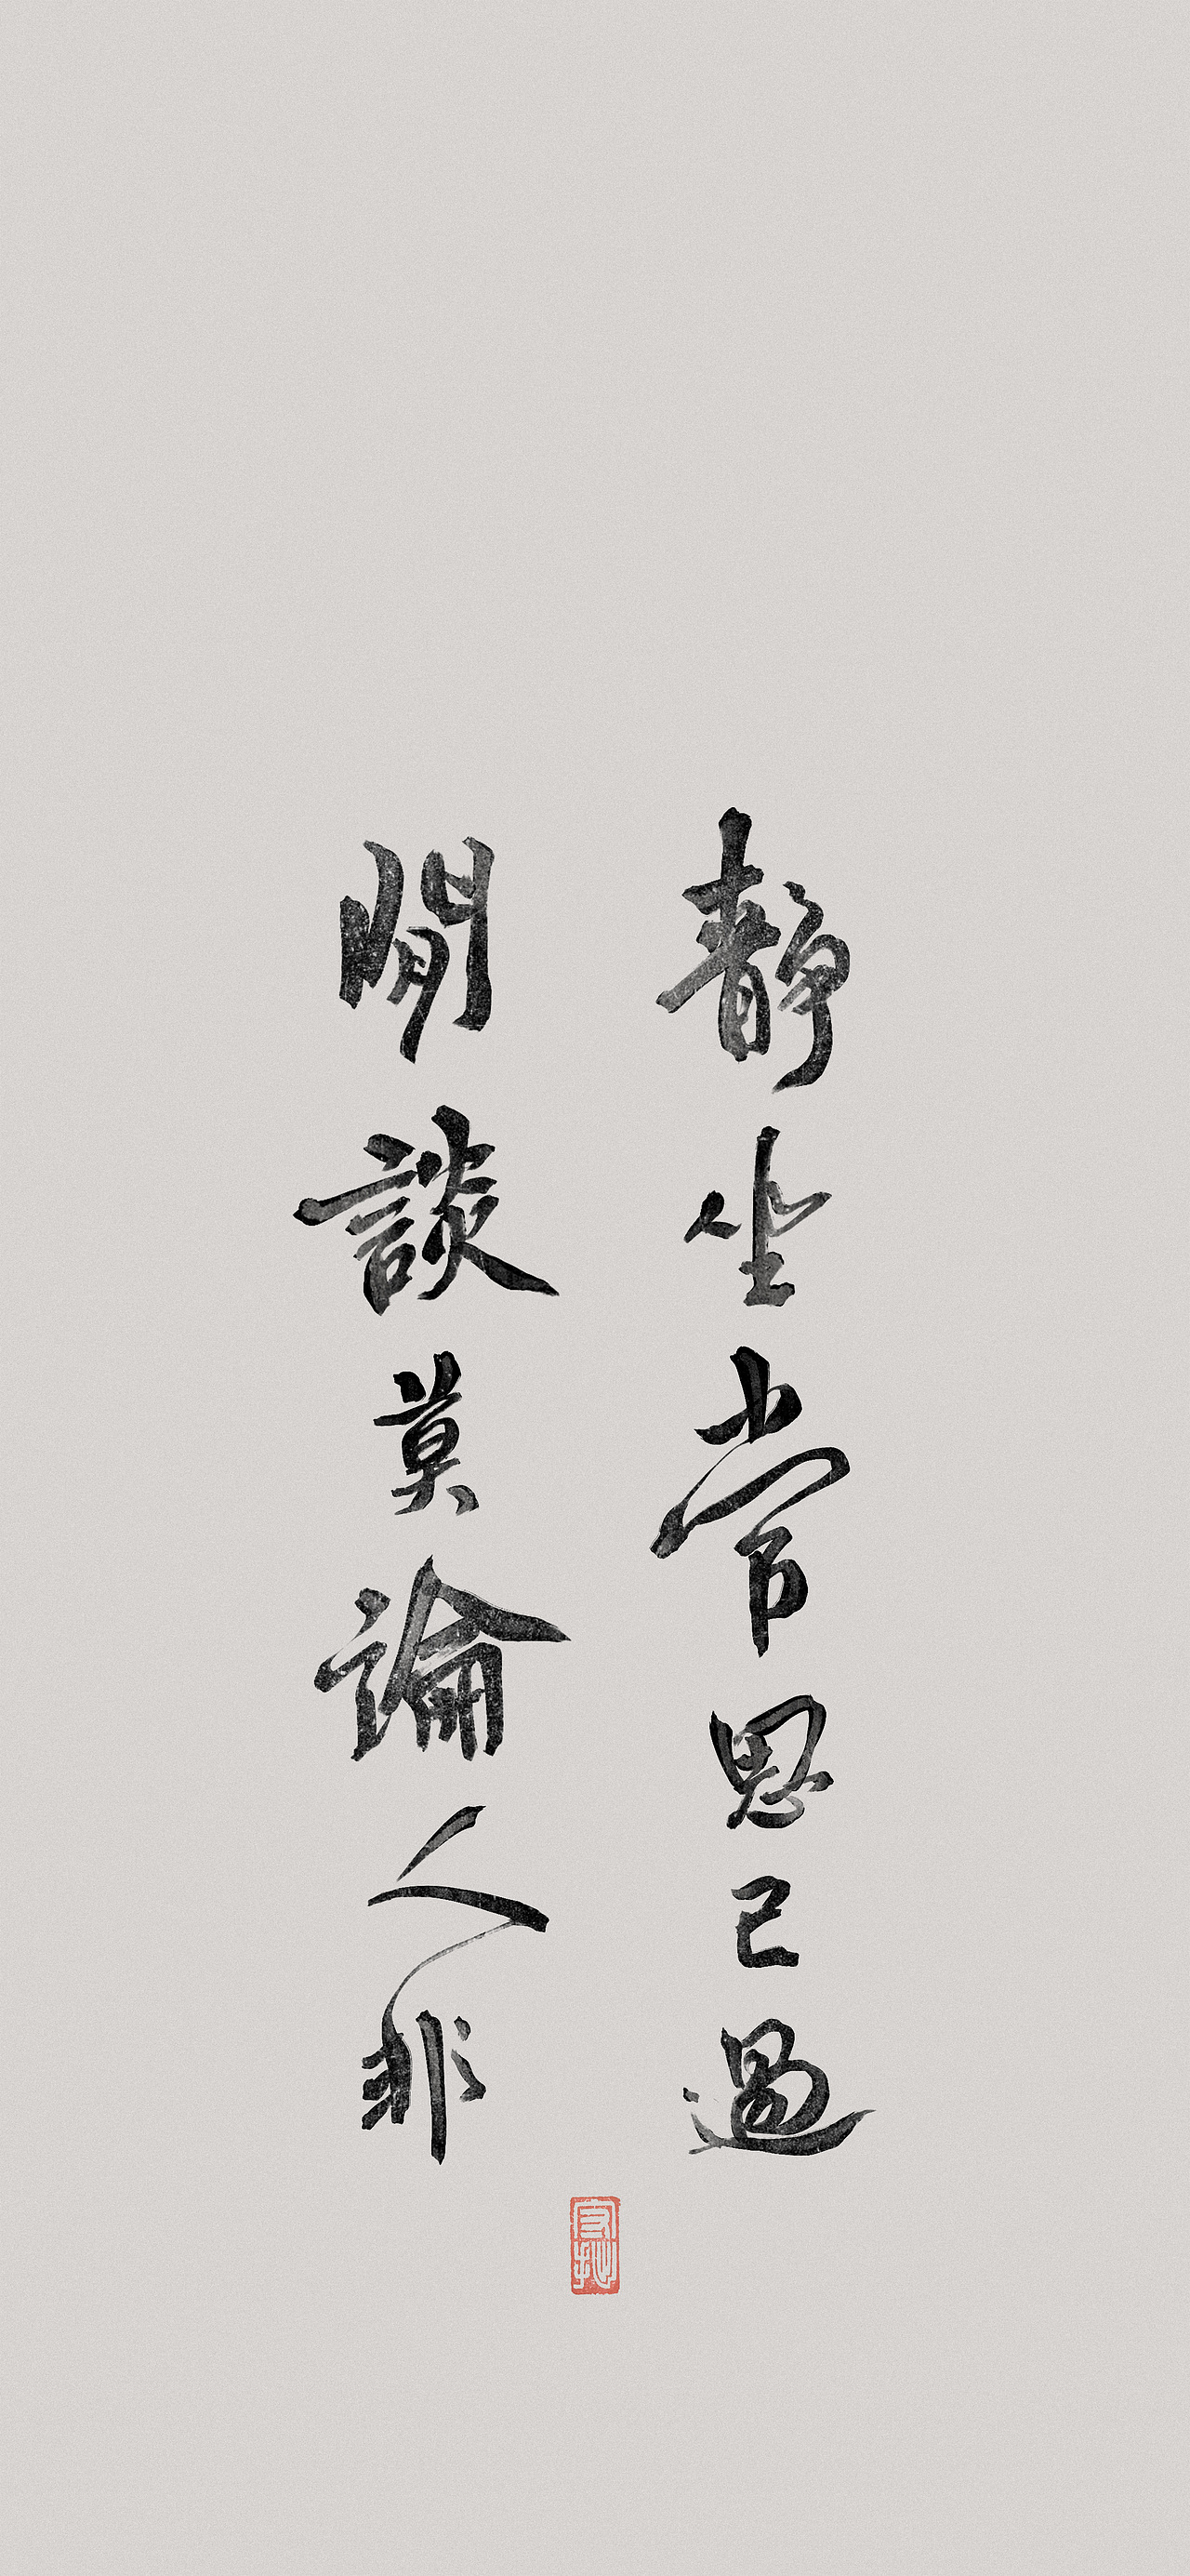 靜坐常思己過
閒談莫論人非
守拙